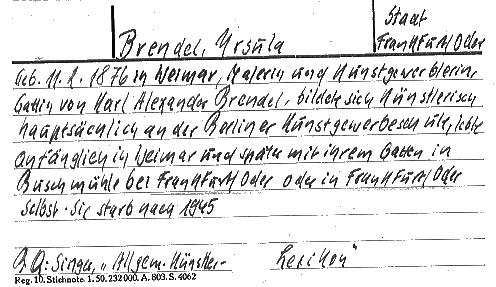 Staat
Brendel, Ursula Frankfurt/Oder
Geb. 11.2.1876 in Weimar, Malerin und Kunstgewerblerin,
Gattin von Karl Alexander Brendel, bildete sich künstlerisch
hauptsächlich an der Berliner Kunstgewerbeschule, lebte
anfänglich in Weimar und später mit ihrem Gatten in
Buschmühle bei Frankfurt/Oder oder in Frankfurt/Oder
selbst. Sie starb nach 1945
Singer, "Allgem. Künstler- Lexikon"
Reg. 10. Stichnote. 1. 50. 232000. A. 803. S. 4062